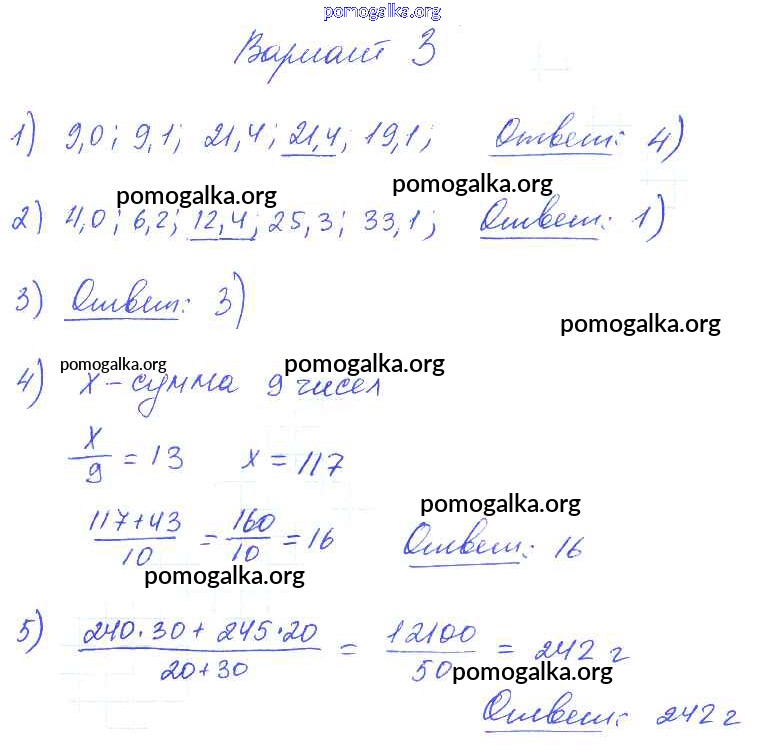 pomogalka.org
Вариант 3
1) 9,0; 9,1; 21,4; 21,4; 19,1; Ответ: 4)
pomogalka.org pomogalka.org
2) 4,0; 6,2; 12,4; 25,3; 33,1; Ответ: 1)
3) Ответ: 3)
pomogalka.org
pomogalka.org pomogalka.org
4) x - сумма 9 чисел
x/9 = 13 x = 117
pomogalka.org
(117+43)/10 = 160/10 = 16 Ответ: 16
pomogalka.org
5) (240·30 + 245·20)/(20+30) = 12100/50 = 242 г
pomogalka.org
Ответ: 242 г